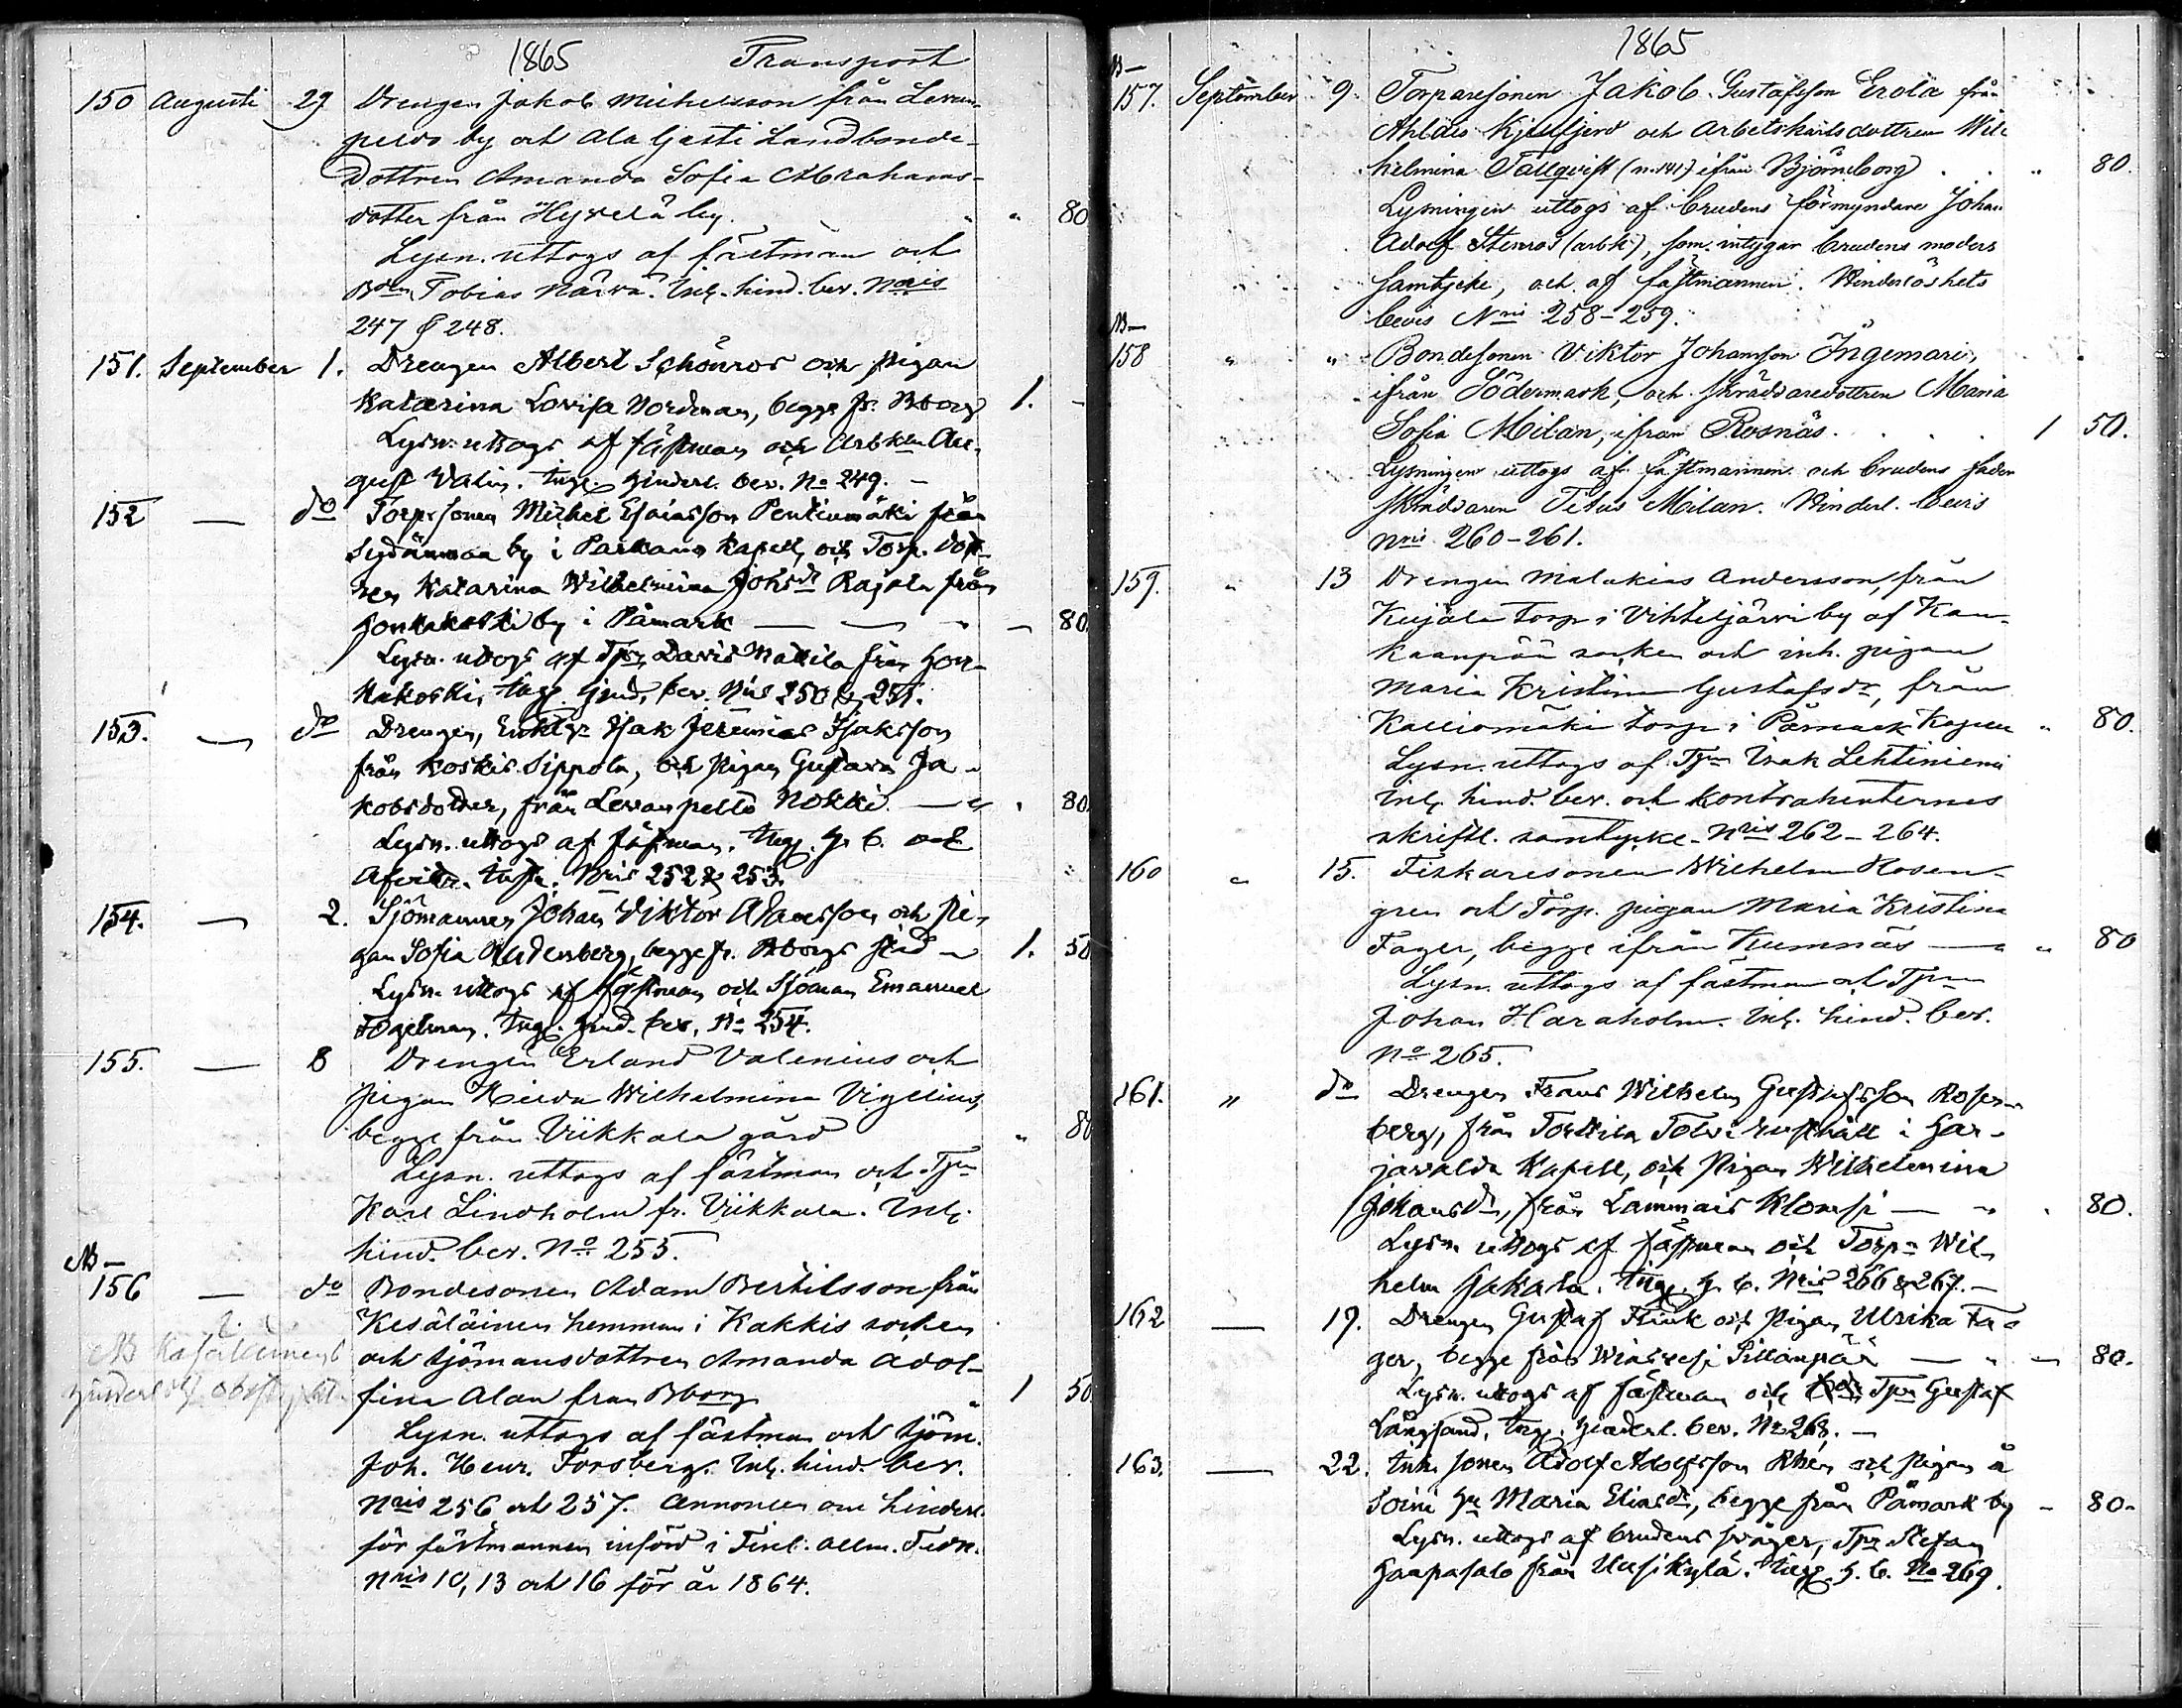 1865 Transport
150 Augusti 29 Drengen Jakob Michelsson från Levan-
pelto by och Ala Gasti Landbonde-
dottren Amanda Sofia Abrahams-
dotter från Hyvelä by. " " 80
Lysn. uttogs af fästman och
Bdn Tobias Närvä. Inl. hind. bev. Nris
247 & 248.
151. September 1. Drengen Albert Schönros och pigan
Katarina Lovisa Nordman, begge fr. Bborg 1. -
Lysn. uttogs af fästman och Arbkln Au-
gust Valin. Ingg. hinderl. bev. No 249. -
152 — do Torp. sonen Michel Esaiasson Pentinmäki från
Sydänmaa by i Parkano Kapell, och Torp. dot-
tren Katarina Wilhelmina Johsdr Rajala från
Honkakoski by i Påmark — — " — 80.
Lysn. uttogs af Tpr David Mattila från Hon-
kakoski, Ingg. hind. bev. Nris 250 & 251.
153. — do Drengen, Enkl. Isak Jeremias Isaksson
från Koskis Sippola, och Pigan Gustava Ja-
kobsdotter, från Levanpelto Nokki — " . 80.
Lysn. uttogs af fästman. Ingg. h. b. och
Afvittr. Nris 252 & 253.
154. — 2. Sjömannen Johan Viktor Adamsson och Pi-
gan Sofia Rudenberg, begge fr. Bborgs stad — 1. 50
Lysn. uttogs af fästman och Sjöman Emanuel
Fogelman. Ingg. hind. bev. No 254.
155. — 8 Drengen Erland Valenius och
Pigan Hilda Wilhelmina Vigelius,
begge från Viikkala gård " 80
Lysn. uttogs af fästman och Tpn
Karl Lindholm fr. Viikkala. Inl.
hind. bev. No 255.
NB —
156 — do Bondesonen Adam Bertilsson från
Kesäläinen hemman i Kakkis socken
och Sjömansdottren Amanda Adol-
fina Alan från Bborg " 1 50.
NB
hinderl.
Lysn. uttogs af fästman och Sjöm.
Joh. Henr. Forsberg. Inl. hind. bev.
Nris 256 och 257. Annoncen om hinderl.
för fästmannen införd i Finl. Allm. Tidn.
Nris 10, 13 och 16 för år 1864.
1865
NB —
157. September 9. Torparesonen Jakob Gustafsson Erola från
Ahlais Kjellfjerd och Arbetskarlsdottren Wil-
helmina Tallqvist (n. 141) ifrån Björneborg . . " 80.
Lysningen uttogs af brudens förmyndare Johan
Adolf Stenros (arbk.), som intygar brudens moders
samtycke, och af fästmannen. Hinderlöshets
bevis Nris 258-259.
NB —
158 " " Bondesonen Viktor Johansson Ingemari,
ifrån Södermark, och Skräddaredottren Maria
Sofia Milan, ifrån Rosnäs. . . . 1 50.
Lysningen uttogs af fästmannen och brudens fader
Skräddaren Titus Milan. Hinderl. bevis
Nris 260-261.
159. " 13 Drengen Malakias Andersson, från
Kujala torp i Vihteljärvi by af Kan-
kaanpää socken och inh. pigan
Maria Kristina Gustafsdr, från
Kalliomäki torp i Påmark Kapell " 80.
Lysn. uttogs af Tpn Isak Lehtiniemi
Inl. hind. bev. och kontrahenternes
skriftl. samtycke. Nris 262-264.
160 " 15. Fiskaresonen Wilhelm Rosen-
gren och Torp. pigan Maria Kristina
Fager, begge ifrån Kumnäs — " " 80
Lysn. uttogs af fästman och Tpn
Johan Haraholm. Inl. hind. bev.
No 265.
161. " do Drengen Frans Wilhelm Gustafsson Rosen-
berg, från Torttila Tolvi rusthåll i Har-
javalda Kapell, och Pigan Wilhelmina
Johansdr, från Lammais Klomsi — " . 80.
Lysn. uttogs af fästman och Torpn Wil-
helm Jakala. Ingg. h. b. Nris 266 & 267. —
162 — 17. Drengen Gustaf Flink och Pigan Ulrika Fa-
ger, begge från Wiasvesi Sillanpää — " — 80.
Lysn. uttogs af fästman och Tpn Gustaf
Långsand, Ingg. hinderl. bev. No 268. —
163. — 22. Inh. sonen Adolf Adolfsson Rhen och Pigan å
Soini Maria Eliasdr, begge från Påmark by — 80.
Lysn. uttogs af brudens svåger, Tpr Stefan
Haapasalo från Uusikylä. Ingg. h. b. No 269.